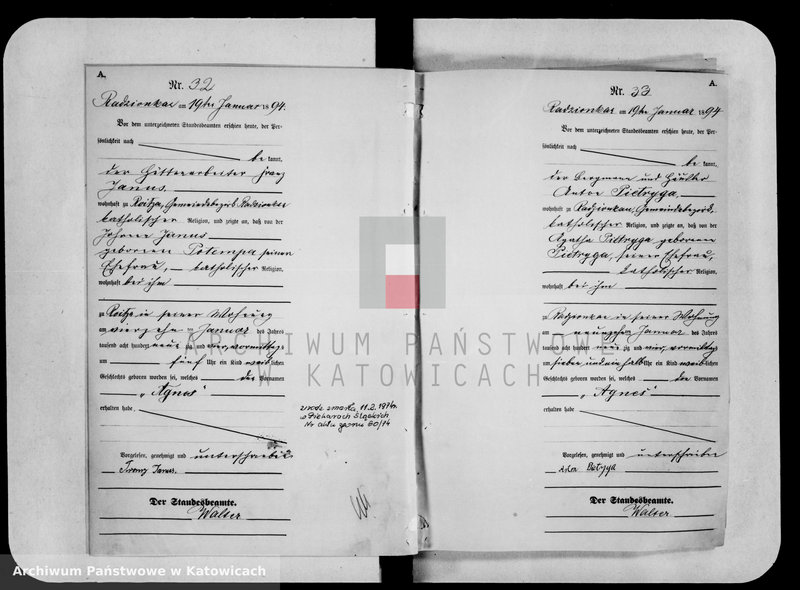 A.
Nr. 32
Radzionkau am 19ten Januar 1894.
Vor dem unterzeichneten Standesbeamten erschien heute, der Per-
sönlichkeit nach
be kannt,
der Hüttenarbeiter Franz
Janus
wohnhaft zu Roitza, Gemeindebezirk Radzionkau
katholischer Religion, und zeigte an, daß von der
Johanne Janus
geborenen Potempa seiner
Ehefrau, katholischer Religion,
wohnhaft bei ihm
zu Roitza in seiner Wohnung
am vierzehn ten Januar des Jahres
tausend acht hundert neun zig und vier, vormittags
um fünf Uhr ein Kind weiblichen
Geschlechts geboren worden sei, welches den Vornamen
"Agnes"
erhalten habe
Vorgelesen, genehmigt und unterschrieben
Franz Janus.
Der Standesbeamte.
Walter
zmarła 11.2.1974r
w Piekarach Śląskich
Nr aktu zgonu 60/74
A.
Nr. 33
Radzionkau am 19ten Januar 1894
Vor dem unterzeichneten Standesbeamten erschien heute, der Per-
sönlichkeit nach
be kannt,
der Bergmann und Häusler
Pietryga,
wohnhaft zu Radzionkau, Gemeindebezirk,
katholischer Religion, und zeigte an, daß von der
Agatha Pietryga geborenen
Pietryga, seiner Ehefrau,
katholischer Religion,
wohnhaft bei ihm
zu Radzionkau in seiner Wohnung
am neunzehn Januar des Jahres
tausend acht hundert neun zig und vier, vormittags
sieben und einhalb Uhr ein Kind weiblichen
Geschlechts geboren worden sei, welches den Vornamen
"Agnes"
erhalten habe
Vorgelesen, genehmigt und unterschrieben
Der Standesbeamte.
Walter
ARCHIWUM PAŃSTWOWE
W KATOWICACH
Archiwum Państwowe w Katowicach